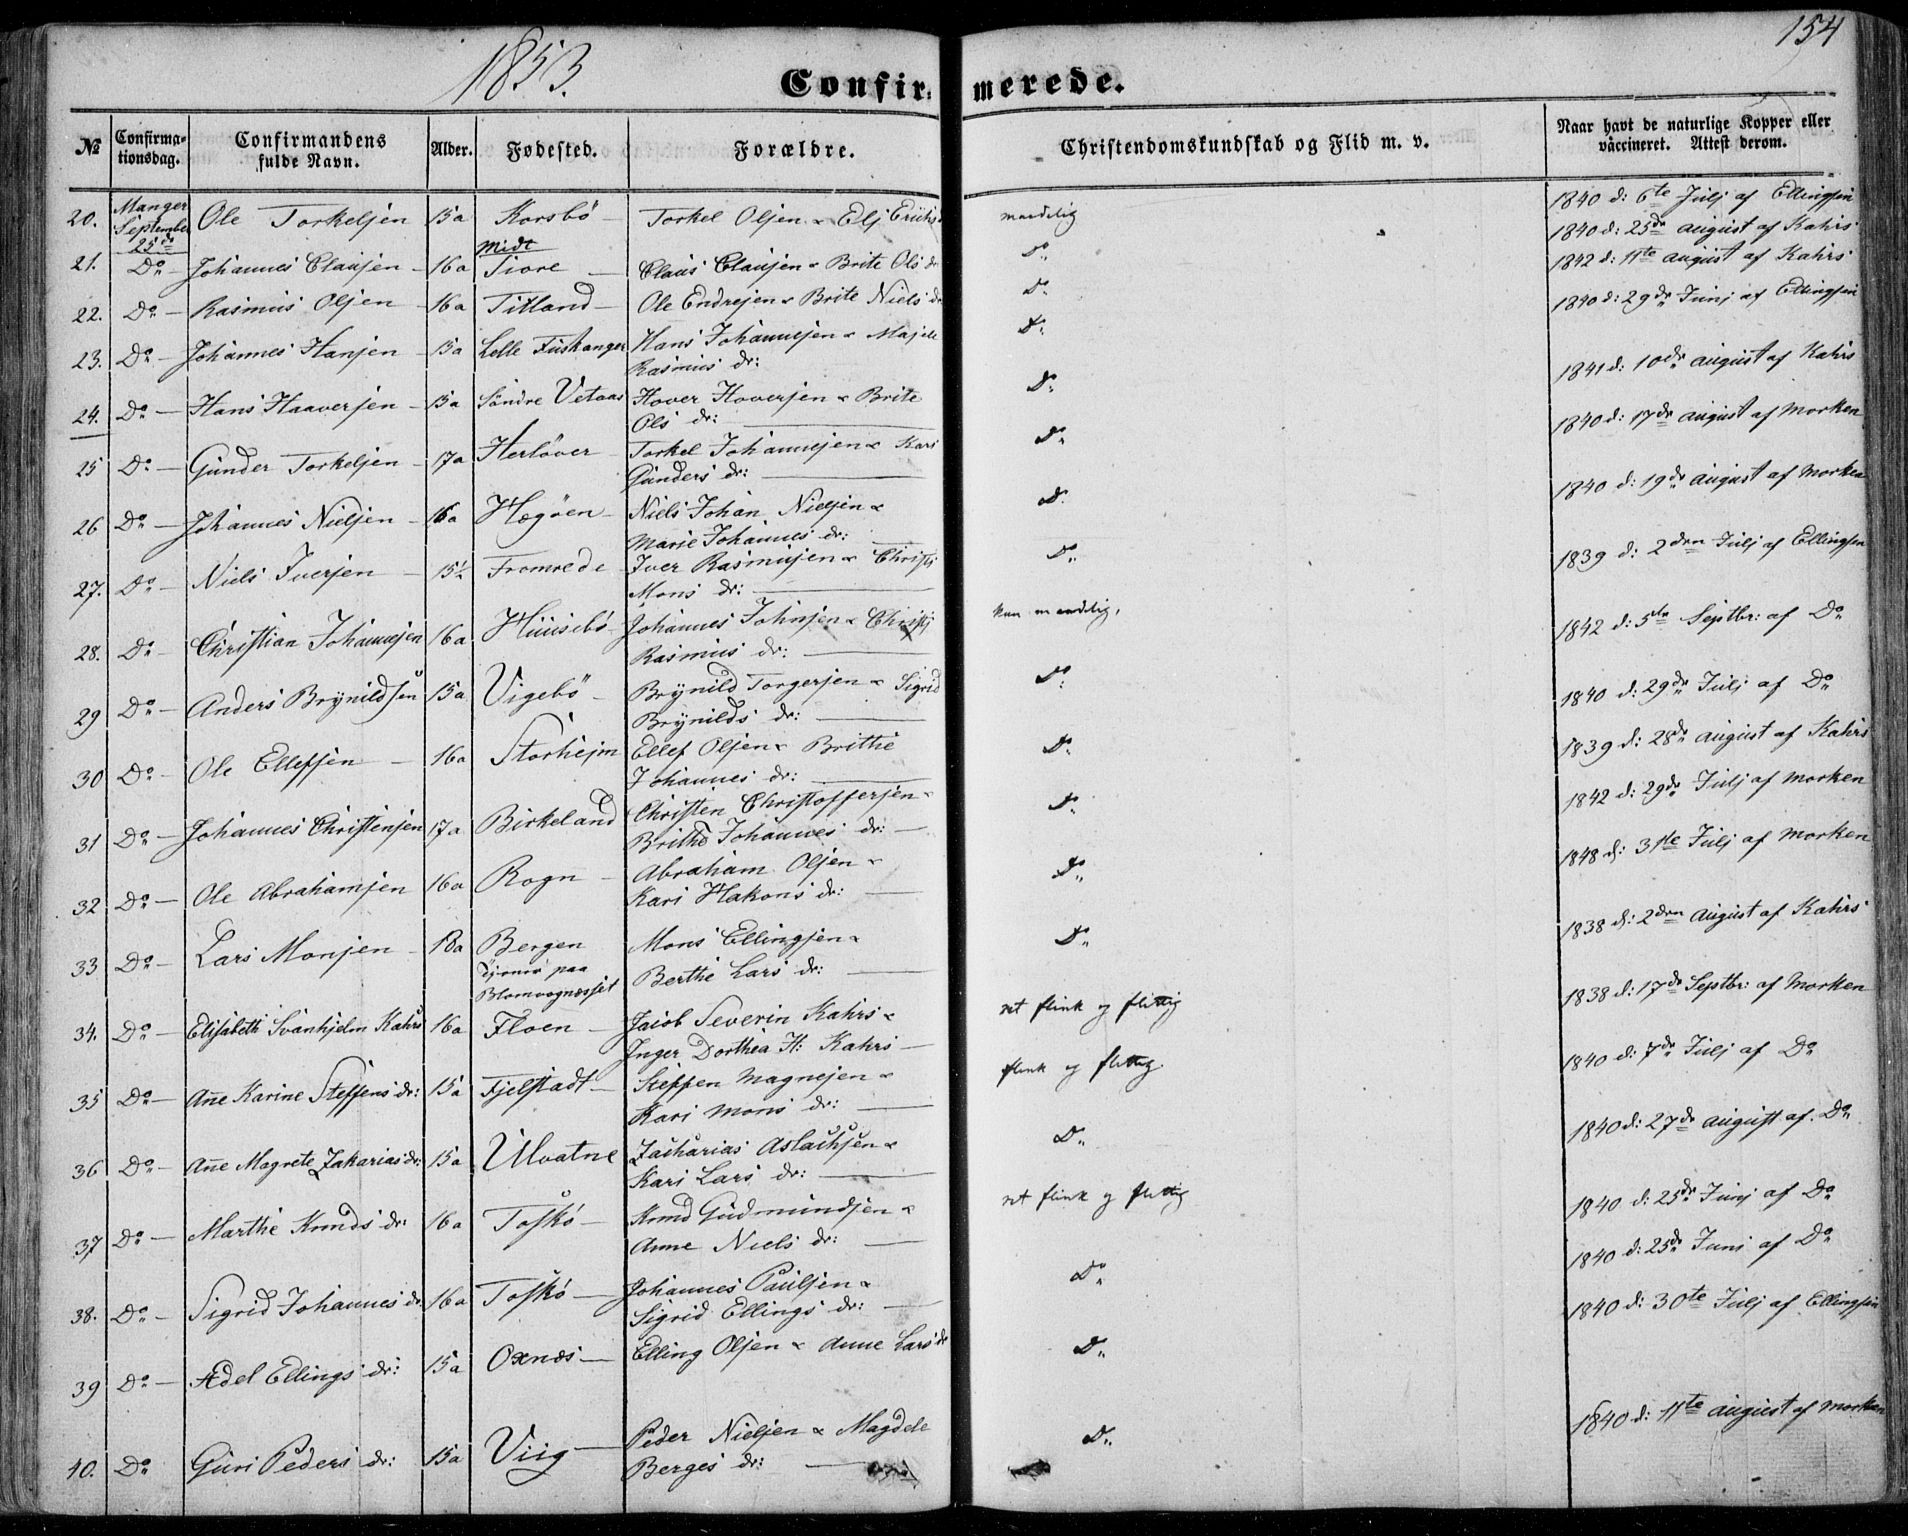 1853.
154
Confirmerede.
№
Confirmationsdag.
Confirmandens fulde Navn.
Alder.
Fødested.
Forældre.
Christendomskundskab og Flid m. v.
Naar havt de naturlige Kopper eller våccineret. Attest derom.
20. Manger September 25de Ole Torkelsen 15a Korsbö Torkel Olsen & Elj maadelig 1840 d: 6te Julj af Ellingsen
1840 d: 25de august af Kahrs
21. Do Johannes Clausen 16a Midt Siore Claus Clausen & Brite Ols dr Do 1842 d: 11te august af Kahrs
22. Do Rasmus Olsen 16a Titland Ole Endresen & Brite Niels dr Do 1840 d: 29de Junj af Ellingsen
23. Do Johannes Hansen 15a Lelle Fuskanger Hans Johannesen & Majele Rasmus dr: Do 1841 d: 10de august af Kahrs
24. Do Hans Haaversen 15a Söndre Vetaas Hover Hoversen & Brite Ols dr: Do 1840 d: 17de august af Morken
25 Do Gunder Torkelsen 17a Herlöver Torkel Johannesen & Kari Gunders dr: Do 1840 d: 19de august af Morken
26 Do Johannes Nielsen 16a Hægöen Niels Johan Nielsen & Marie Johannes dr: Do 1839 d: 2den Julj af Ellingsen
27. Do Niels Iversen 15½ Fromrede Iver Rasmusen & Christj Mons dr: Do
28. Do Christian Johannesen 16a Huusebö Johannes Johnsen & Christj Rasmus dr: kun maadelig. 1842 d: 5te Septbr: af Do
29 Do Anders Brynildsen 15a Vigebö Brynild Torgersen & Sigrid Brynilds dr: Do 1840 d: 29de Julj af Do
30 Do Ole Ellefsen 16a Storhejm Ellef Olsen & Brithe Johannes dr: Do 1839 d: 28de august af Kahrs
31 Do Johannes Christensen 17a Birkeland Christen Christoffersen & Brithe Johannes dr: Do 1842 d: 29de Julj af Morken
32 Do Ole Abrahamsen 16a Rogn Abraham Olsen & Kari Hakons dr: Do 1848 d: 31te Julj af Morken
33 Do Lars Monsen 18a Bergen paa Blomvognæsset Mons Ellingsen & Berthe Lars dr: Do 1838 d: 2den august af Kahrs
34. Do Elisabeth Svanhjelm Kahrs 16a Floen Jacob Severin Kahrs & Inger Dorthea H: Kahrs ret flink og flittig 1838 d: 17de Septbr: af Morken
35 Do Ane Karine Steffens dr: 15a Fjelstadt Steffen Magnesen & Kari Mons dr: flink og flittig. 1840 d: 7de Julj af Do
36 Do Ane Magrete Zakarias dr: 15a Ulvatne Zacharias Aslachsen & Kari Lars dr: Do 1840 d: 27de august af Do
37 Do Marthe Knuds dr: 16a Toskö Knud Gudmundsen & Anne Niels dr: ret flink og flittig 1840 d: 25de Junj af Do
38. Do Sigrid Johannes dr 16a Toskö Johannes Paulsen & Sigrid Ellings dr: Do 1840 d: 25de Juni af Do
39 Do Adel Ellings dr: 15a Oxnæs Elling Olsen & Anne Lars dr Do 1840 d: 30te Julj af Ellingsen
40. Do Guri Peders dr: 15a Viig Peder Nielsen & Magdele Berges dr: Do 1840 d: 11te august af Morken